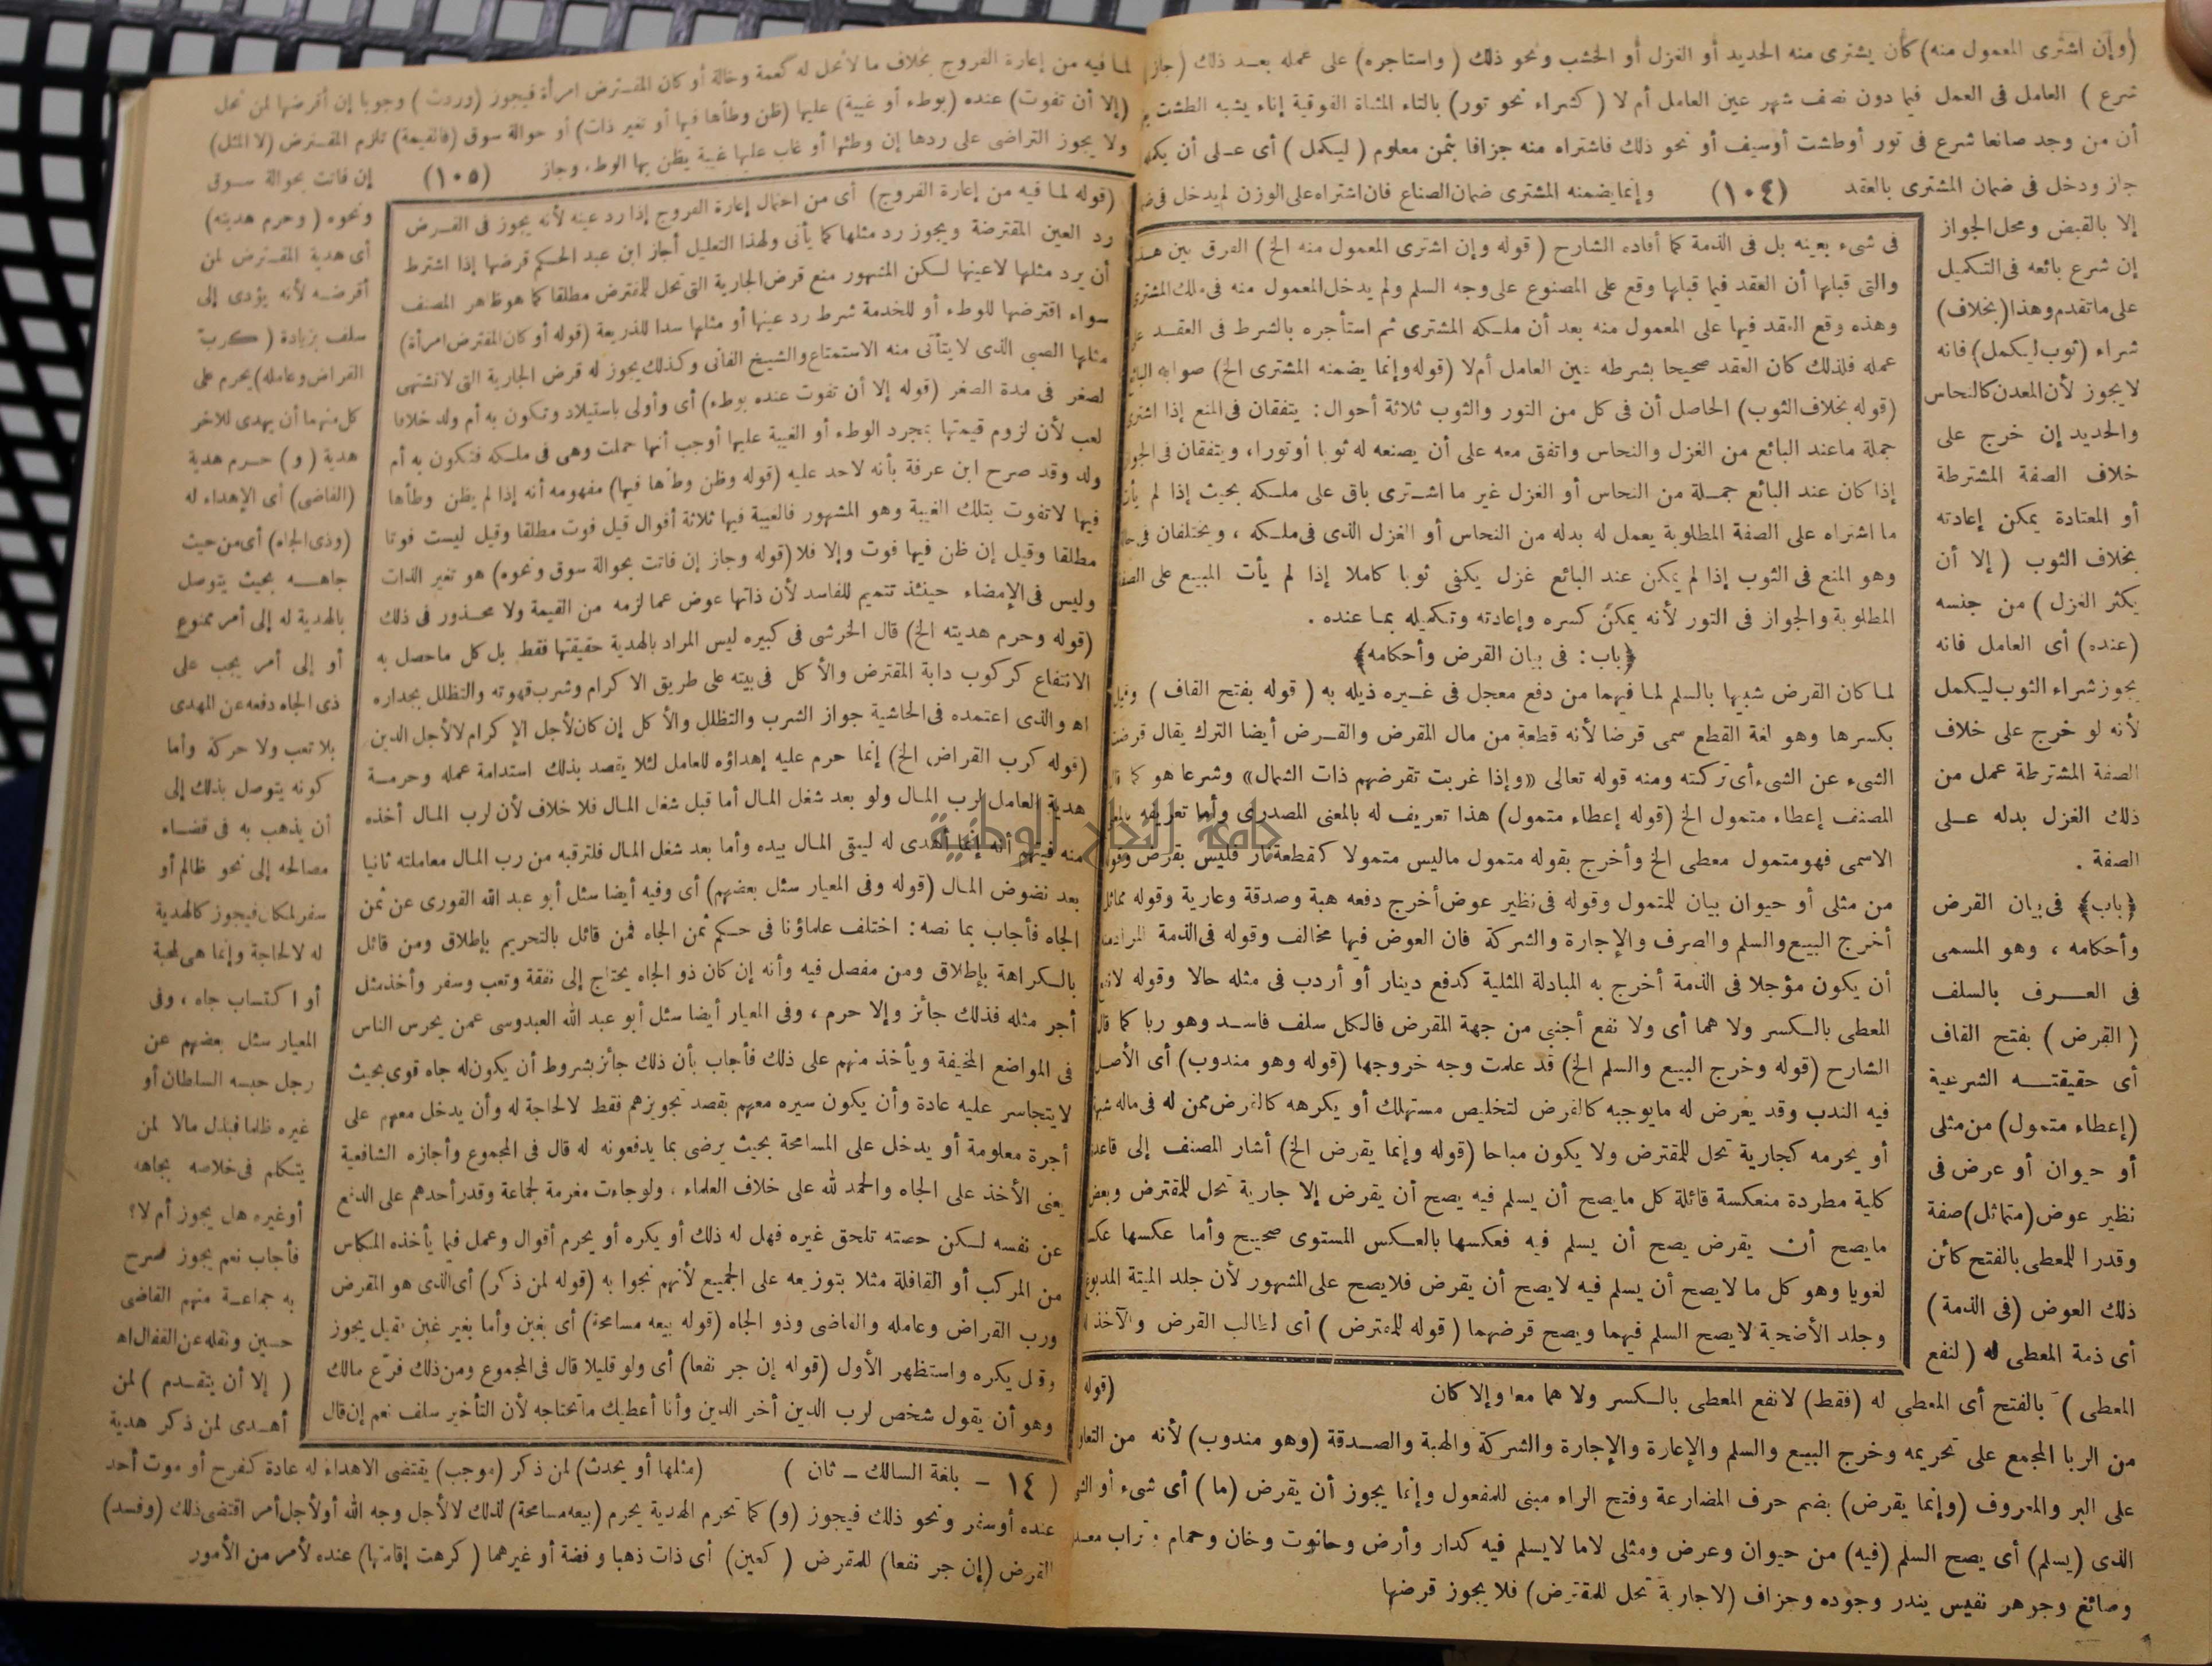 (وإن اشترى المعمول منه) كأن يشترى منه الحديد أو الغزل أو الخشب ونحو ذلك (واستاجره) على عمله بعد ذلك (جاز
شرع) العامل فى العمل فيما دون نصف شهر عين العامل أم لا (كشراء نحو تور) بالتاء المثناة الفوقية إناء يشبه الطشت
أن من وجد صانعا شرع فى تور أوطشت أوسيف أو نحو ذلك فاشتراه منه جزافا بثمن معلوم (ليكمل) أى على أن يكمله
جاز ودخل فى ضمان المشترى بالعقد (١٠٤) وإنما يضمنه المشترى ضمان الصناع فان اشتراه على الوزن لم يدخل فى
إلا بالقبض ومحل الجواز
إن شرع بائعه فى التكميل
على ماتقدم وهذا (بخلاف)
شراء (ثوب ليكمل) فانه
لايجوز لأن المعدن كالنحاس
والحديد إن خرج على
خلاف الصفة المشترطة
أو المعتادة يمكن إعادته
بخلاف الثوب (إلا أن
يكثر الغزل) من جنسه
(عنده) أى العامل فانه
يجوز شراء الثوب ليكمل
لأنه لو خرج على خلاف
الصفة المشترطة عمل من
ذلك الغزل بدله على
الصفة .
﴿باب﴾ فى بيان القرض
وأحكامه ، وهو المسمى
فى العرف بالسلف
(القرض) بفتح القاف
أى حقيقته الشرعية
(إعطاء متمول) من مثلى
أو حيوان أو عرض فى
نظير عوض (متماثل) صفة
وقدرا للمعطى بالفتح كائن
ذلك العوض (فى الذمة)
أى ذمة المعطى له (لنفع
فى شىء بعينه بل فى الذمة كما أفاده الشارح (قوله وإن اشترى المعمول منه الخ) الفرق بين
والتى قبلها أن العقد فيما قبلها وقع على المصنوع على وجه السلم ولم يدخل المعمول منه فى ملك المشترى
وهذه وقع العقد فيها على المعمول منه بعد أن ملكه المشترى ثم استأجره بالشرط فى العقد
عمله فلذلك كان العقد صحيحا بشرطه عين العامل أم لا (قوله وإنما يضمنه المشترى الخ) صوابه
(قوله بخلاف الثوب) الحاصل أن فى كل من التور والثوب ثلاثة أحوال : يتفقان فى المنع إذا اشترى
جملة ماعند البائع من الغزل والنحاس واتفق معه على أن يصنعه له ثوبا أوتورا، ويتفقان فى
إذا كان عند البائع جملة من النحاس أو الغزل غير ما اشترى باق على ملكه بحيث إذا لم
ما اشتراه على الصفة المطلوبة يعمل له بدله من النحاس أو الغزل الذى فى ملكه ، ويختلفان فى
وهو المنع فى الثوب إذا لم يكن عند البائع غزل يكفى ثوبا كاملا إذا لم يأت المبيع على
المطلوبة والجواز فى التور لأنه يمكن كسره وإعادته وتكميله بما عنده .
﴿باب : فى بيان القرض وأحكامه﴾
لما كان القرض شبيها بالسلم لما فيهما من دفع معجل فى غيره ذيله به (قوله بفتح القاف)
بكسرها وهو لغة القطع سمى قرضا لأنه قطعة من مال المقرض والقرض أيضا الترك يقال قرضت
الشىء عن الشىء أى تركته ومنه قوله تعالى «وإذا غربت تقرضهم ذات الشمال» وشرعا هو كما
المصنف إعطاء متمول الخ (قوله إعطاء متمول) هذا تعريف له بالمعنى المصدرى وأما تعريفه
الاسمى فهو متمول معطى الخ وأخرج بقوله متمول ماليس متمولا كقطعة نار فليس بقرض
من مثلى أو حيوان بيان للمتمول وقوله فى نظير عوض أخرج دفعه هبة وصدقة وعارية وقوله
أخرج البيع والسلم والصرف والإجارة والشركة فان العوض فيها مخالف وقوله فى الذمة
أن يكون مؤجلا فى الذمة أخرج به المبادلة المثلية كدفع دينار أو أردب فى مثله حالا وقوله
المعطى بالكسر ولا هما أى ولا نفع أجنبى من جهة المقرض فالكل سلف فاسد وهو ربا كما
الشارح (قوله وخرج البيع والسلم الخ) قد علمت وجه خروجها (قوله وهو مندوب) أى الأصل
فيه الندب وقد يعرض له مايوجبه كالقرض لتخليص مستهلك أو يكرهه كالقرض ممن له فى ماله
أو يحرمه كجارية تحل للمقترض ولا يكون مباحا (قوله وإنما يقرض الخ) أشار المصنف إلى
كلية مطردة منعكسة قائلة كل مايصح أن يسلم فيه يصح أن يقرض إلا جارية تحل للمقترض
مايصح أن يقرض يصح أن يسلم فيه فعكسها بالعكس المستوى صحيح وأما عكسها
لغويا وهو كل ما لا يصح أن يسلم فيه لايصح أن يقرض فلايصح على المشهور لأن جلد الميتة
وجلد الأضحية لايصح السلم فيهما ويصح قرضهما (قوله للمقترض) أى لطالب القرض والآخذ
(قوله
المعطى) بالفتح أى المعطى له (فقط) لانفع المعطى بالكسر ولا هما معا وإلا كان
من الربا المجمع على تحريمه وخرج البيع والسلم والإعارة والإجارة والشركة والهبة والصدقة (وهو مندوب) لأنه من
على البر والمعروف (وإنما يقرض) بضم حرف المضارعة وفتح الراء مبنى للمفعول وإنما يجوز أن يقرض (ما) أى شىء أو
الذى (يسلم) أى يصح السلم (فيه) من حيوان وعرض ومثلى لاما لايسلم فيه كدار وأرض وحانوت وخان وحمام وتراب
وصائغ وجوهر نفيس يندر وجوده وجزاف (لا جارية تحل للمقترض) فلا يجوز قرضها
لما فيه من إعارة الفروج بخلاف ما لاتحل له كعمة وخالة أو كان المقترض امرأة فيجوز (وردت) وجوبا إن أقرضها لمن تحل
(إلا أن تفوت) عنده (بوطء أو غيبة) عليها (ظن وطأها فيها أو تغير ذات) أو حوالة سوق (فالقيمة) تلزم المقترض (لا المثل)
ولا يجوز التراضى على ردها إن وطئها أو غاب عليها غيبة يظن بها الوطء وجاز (١٠٥) إن فاتت بحوالة سوق
ونحوه (وحرم هديته)
أى هدية المقترض لمن
أقرضه لأنه يؤدى إلى
سلف بزيادة (كرب
القراض وعامله) يحرم على
كل منهما أن يهدى للآخر
هدية (و) حرم هدية
(القاضى) أى الإهداء له
(وذى الجاه) أى من حيث
جاهه بحيث يتوصل
بالهدية له إلى أمر ممنوع
أو إلى أمر يجب على
ذى الجاه دفعه عن المهدى
بلا تعب ولا حركة وأما
كونه يتوصل بذلك إلى
أن يذهب به فى قضاء
مصالحه إلى نحو ظالم أو
سفر لمكان فيجوز كالهدية
له لا لحاجة وإنما هى لمحبة
أو اكتساب جاه ، وفى
المعيار سئل بعضهم عن
رجل حبسه السلطان أو
غيره ظلما فبذل مالا لمن
يتكلم فى خلاصه بجاهه
أو غيره هل يجوز أم لا؟
فأجاب نعم يجوز صرح
به جماعة منهم القاضى
حسين ونقله عن القفال اه
(إلا أن يتقدم) لمن
أهدى لمن ذكر هدية
(قوله لما فيه من إعارة الفروج) أى من احتمال إعارة الفروج إذا رد عينه لأنه يجوز فى القرض
رد العين المقترضة ويجوز رد مثلها كما يأتى ولهذا التعليل أجاز ابن عبد الحكم قرضها إذا اشترط
أن يرد مثلها لاعينها لكن المشهور منع قرض الجارية التى تحل للمقترض مطلقا كما هو ظاهر المصنف
سواء اقترضها للوطء أو للخدمة شرط رد عينها أو مثلها سدا للذريعة (قوله أو كان المقترض امرأة)
مثلها الصبى الذى لا يتأتى منه الاستمتاع والشيخ الفانى وكذلك يجوز له قرض الجارية التى لاتشتهى
لصغر فى مدة الصغر (قوله إلا أن تفوت عنده بوطء) أى وأولى باستيلاد وتكون به أم ولد خلافا
لعب لأن لزوم قيمتها بمجرد الوطء أو الغيبة عليها أوجب أنها حملت وهى فى ملكه فتكون به أم
ولد وقد صرح ابن عرفة بأنه لاحد عليه (قوله وظن وطأها فيها) مفهومه أنه إذا لم يظن وطأها
فيها لاتفوت بتلك الغيبة وهو المشهور فالغيبة فيها ثلاثة أقوال قيل فوت مطلقا وقيل ليست فوتا
مطلقا وقيل إن ظن فيها فوت وإلا فلا (قوله وجاز إن فاتت بحوالة سوق ونحوه) هو تغير الذات
وليس فى الإمضاء حينئذ تتميم للفاسد لأن ذاتها عوض عما لزمه من القيمة ولا محذور فى ذلك
(قوله وحرم هديته الخ) قال الخرشى فى كبيره ليس المراد بالهدية حقيقتها فقط بل كل ماحصل به
الانتفاع كركوب دابة المقترض والأكل فى بيته على طريق الاكرام وشرب قهوته والتظلل بجداره
اه والذى اعتمده فى الحاشية جواز الشرب والتظلل والأكل إن كان لأجل الإكرام لالأجل الدين
(قوله كرب القراض الخ) إنما حرم عليه إهداؤه للعامل لئلا يقصد بذلك استدامة عمله وحرمة
هدية العامل لرب المال ولو بعد شغل المال أما قبل شغل المال فلا خلاف لأن لرب المال أخذه
منه فيتهم أنه إنما أهدى له ليبقى المال بيده وأما بعد شغل المال فلترقبه من رب المال معاملته ثانيا
بعد نضوض المال (قوله وفى المعيار سئل بعضهم) أى وفيه أيضا سئل أبو عبد الله القورى عن ثمن
الجاه فأجاب بما نصه : اختلف علماؤنا فى حكم ثمن الجاه فمن قائل بالتحريم بإطلاق ومن قائل
بالكراهة بإطلاق ومن مفصل فيه وأنه إن كان ذو الجاه يحتاج إلى نفقة وتعب وسفر وأخذ مثل
أجر مثله فذلك جائز وإلا حرم ، وفى المعيار أيضا سئل أبو عبد الله العبدوسى عمن يحرس الناس
فى المواضع المخيفة ويأخذ منهم على ذلك فأجاب بأن ذلك جائز بشروط أن يكون له جاه قوى بحيث
لايتجاسر عليه عادة وأن يكون سيره معهم بقصد تجويزهم فقط لالحاجة له وأن يدخل معهم على
أجرة معلومة أو يدخل على المسامحة بحيث يرضى بما يدفعونه له قال فى المجموع وأجازه الشافعية
يعنى الأخذ على الجاه والحمد لله على خلاف العلماء ، ولو جاءت مغرمة لجماعة وقدر أحدهم على الدفع
عن نفسه لكن حصته تلحق غيره فهل له ذلك أو يكره أو يحرم أقوال وعمل فيما يأخذه المكاس
من المركب أو القافلة مثلا بتوزيعه على الجميع لأنهم نجوا به (قوله لمن ذكر) أى الذى هو المقرض
ورب القراض وعامله والقاضى وذو الجاه (قوله بيعه مسامحة) أى بغبن وأما بغير غبن فقيل يجوز
وقيل يكره واستظهر الأول (قوله إن جر نفعا) أى ولو قليلا قال فى المجموع ومن ذلك فرع مالك
وهو أن يقول شخص لرب الدين أخر الدين وأنا أعطيك ماتحتاجه لأن التأخير سلف نعم إن قال
(١٤ - بلغة السالك - ثان)
(مثلها أو يحدث) لمن ذكر (موجب) يقتضى الاهداء له عادة كفرح أو موت أحد
عنده أوسفر ونحو ذلك فيجوز (و) كما تحرم الهدية يحرم (بيعه مسامحة) لذلك لالأجل وجه الله أولأجل أمر اقتضى ذلك (وفسد)
القرض (إن جر نفعا) للمقرض (كعين) أى ذات ذهبا وفضة أو غيرهما (كرهت إقامتها) عنده لأمر من الأمور
جامعة النجاح الوطنية